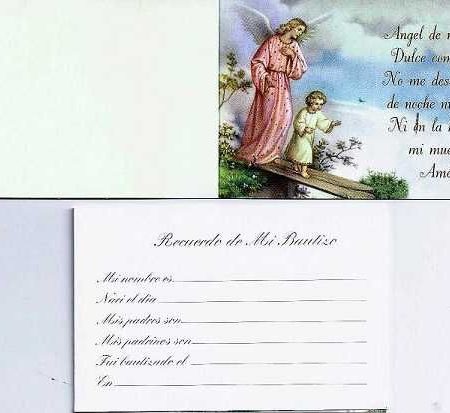 Angel de
Dulce
No me
de noche
Ni en la
mi
Recuerdo de Mi Bautizo
Mi nombre es
Naci el dia
Mis padres son
Mis padrinos son
Fui bautizado el
En